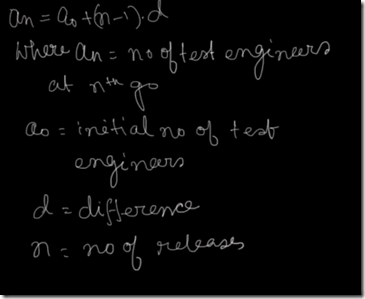 an = a0 + (n-1).d
where an = no of test engineers
at nth go
a0 = initial no of test
engineers
d = difference
n = no of releases